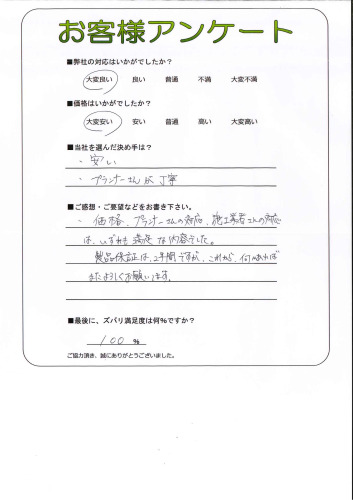 お客様アンケート
■弊社の対応はいかがでしたか？
大変良い 良い 普通 不満 大変不満
■価格はいかがでしたか？
大変安い 安い 普通 高い 大変高い
■当社を選んだ決め手は？
・安い
・プランナーさんが丁寧
■ご感想・ご要望などをお書き下さい。
・価格、プランナーさんの対応、施工業者さんの対応
は、いずれも満足な内容でした。
製品保証は、2年間ですが、これから、何かあれば
またよろしくお願いします。
■最後に、ズバリ満足度は何%ですか？
100 %
ご協力頂き、誠にありがとうございました。